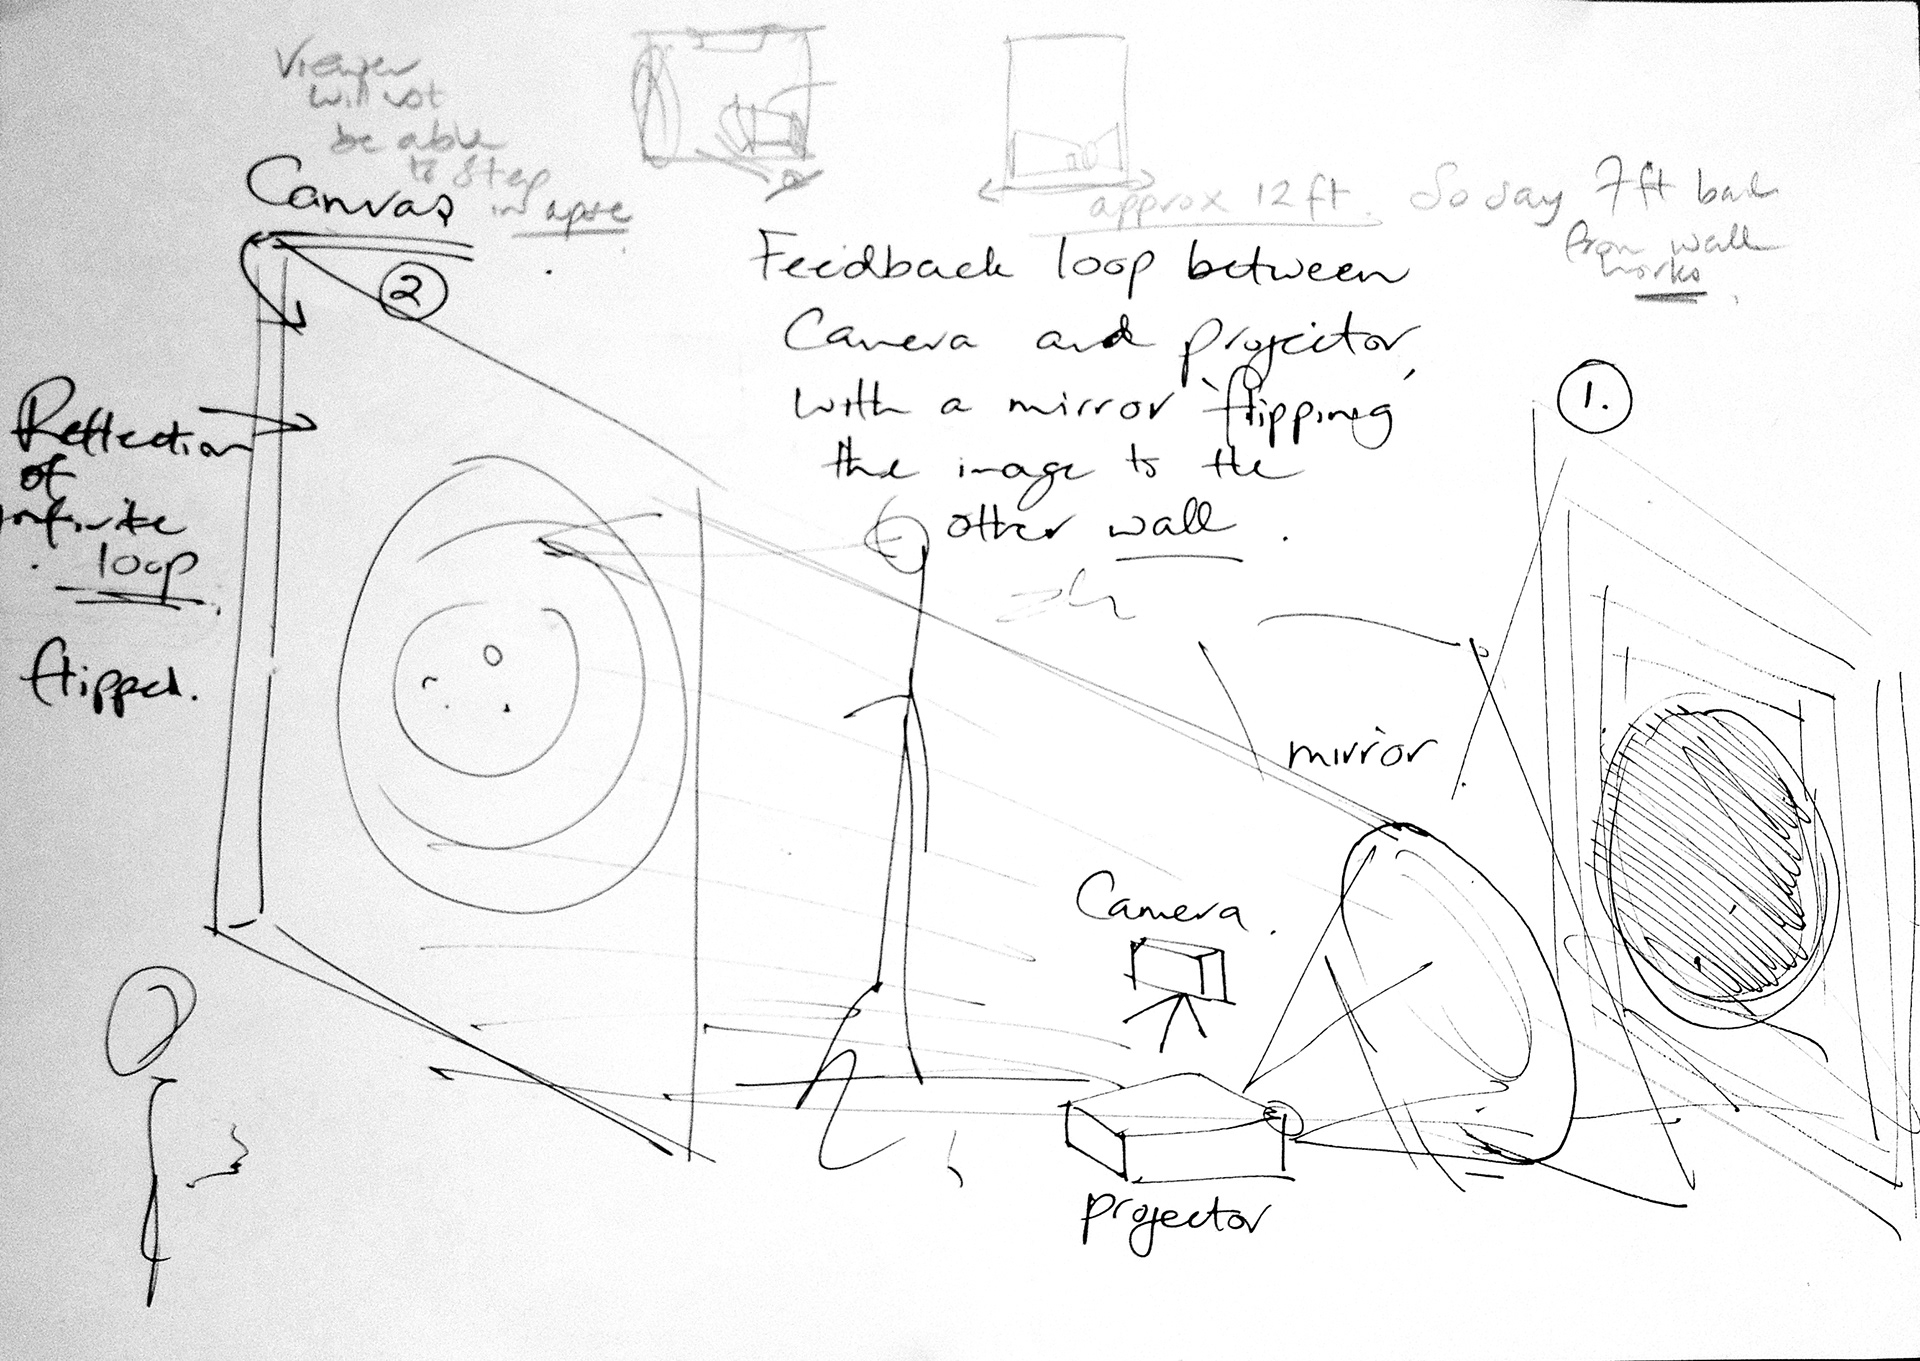 Viewer
will not
be able
to step
in
approx 12 ft. So say 7ft back
from wall
works
Canvas
2
Feedback loop between
Camera and projector
with a mirror 'flipping'
the image to the
other wall.
1.
Reflection
of
infinite
loop
flipped.
mirror
Camera
projector